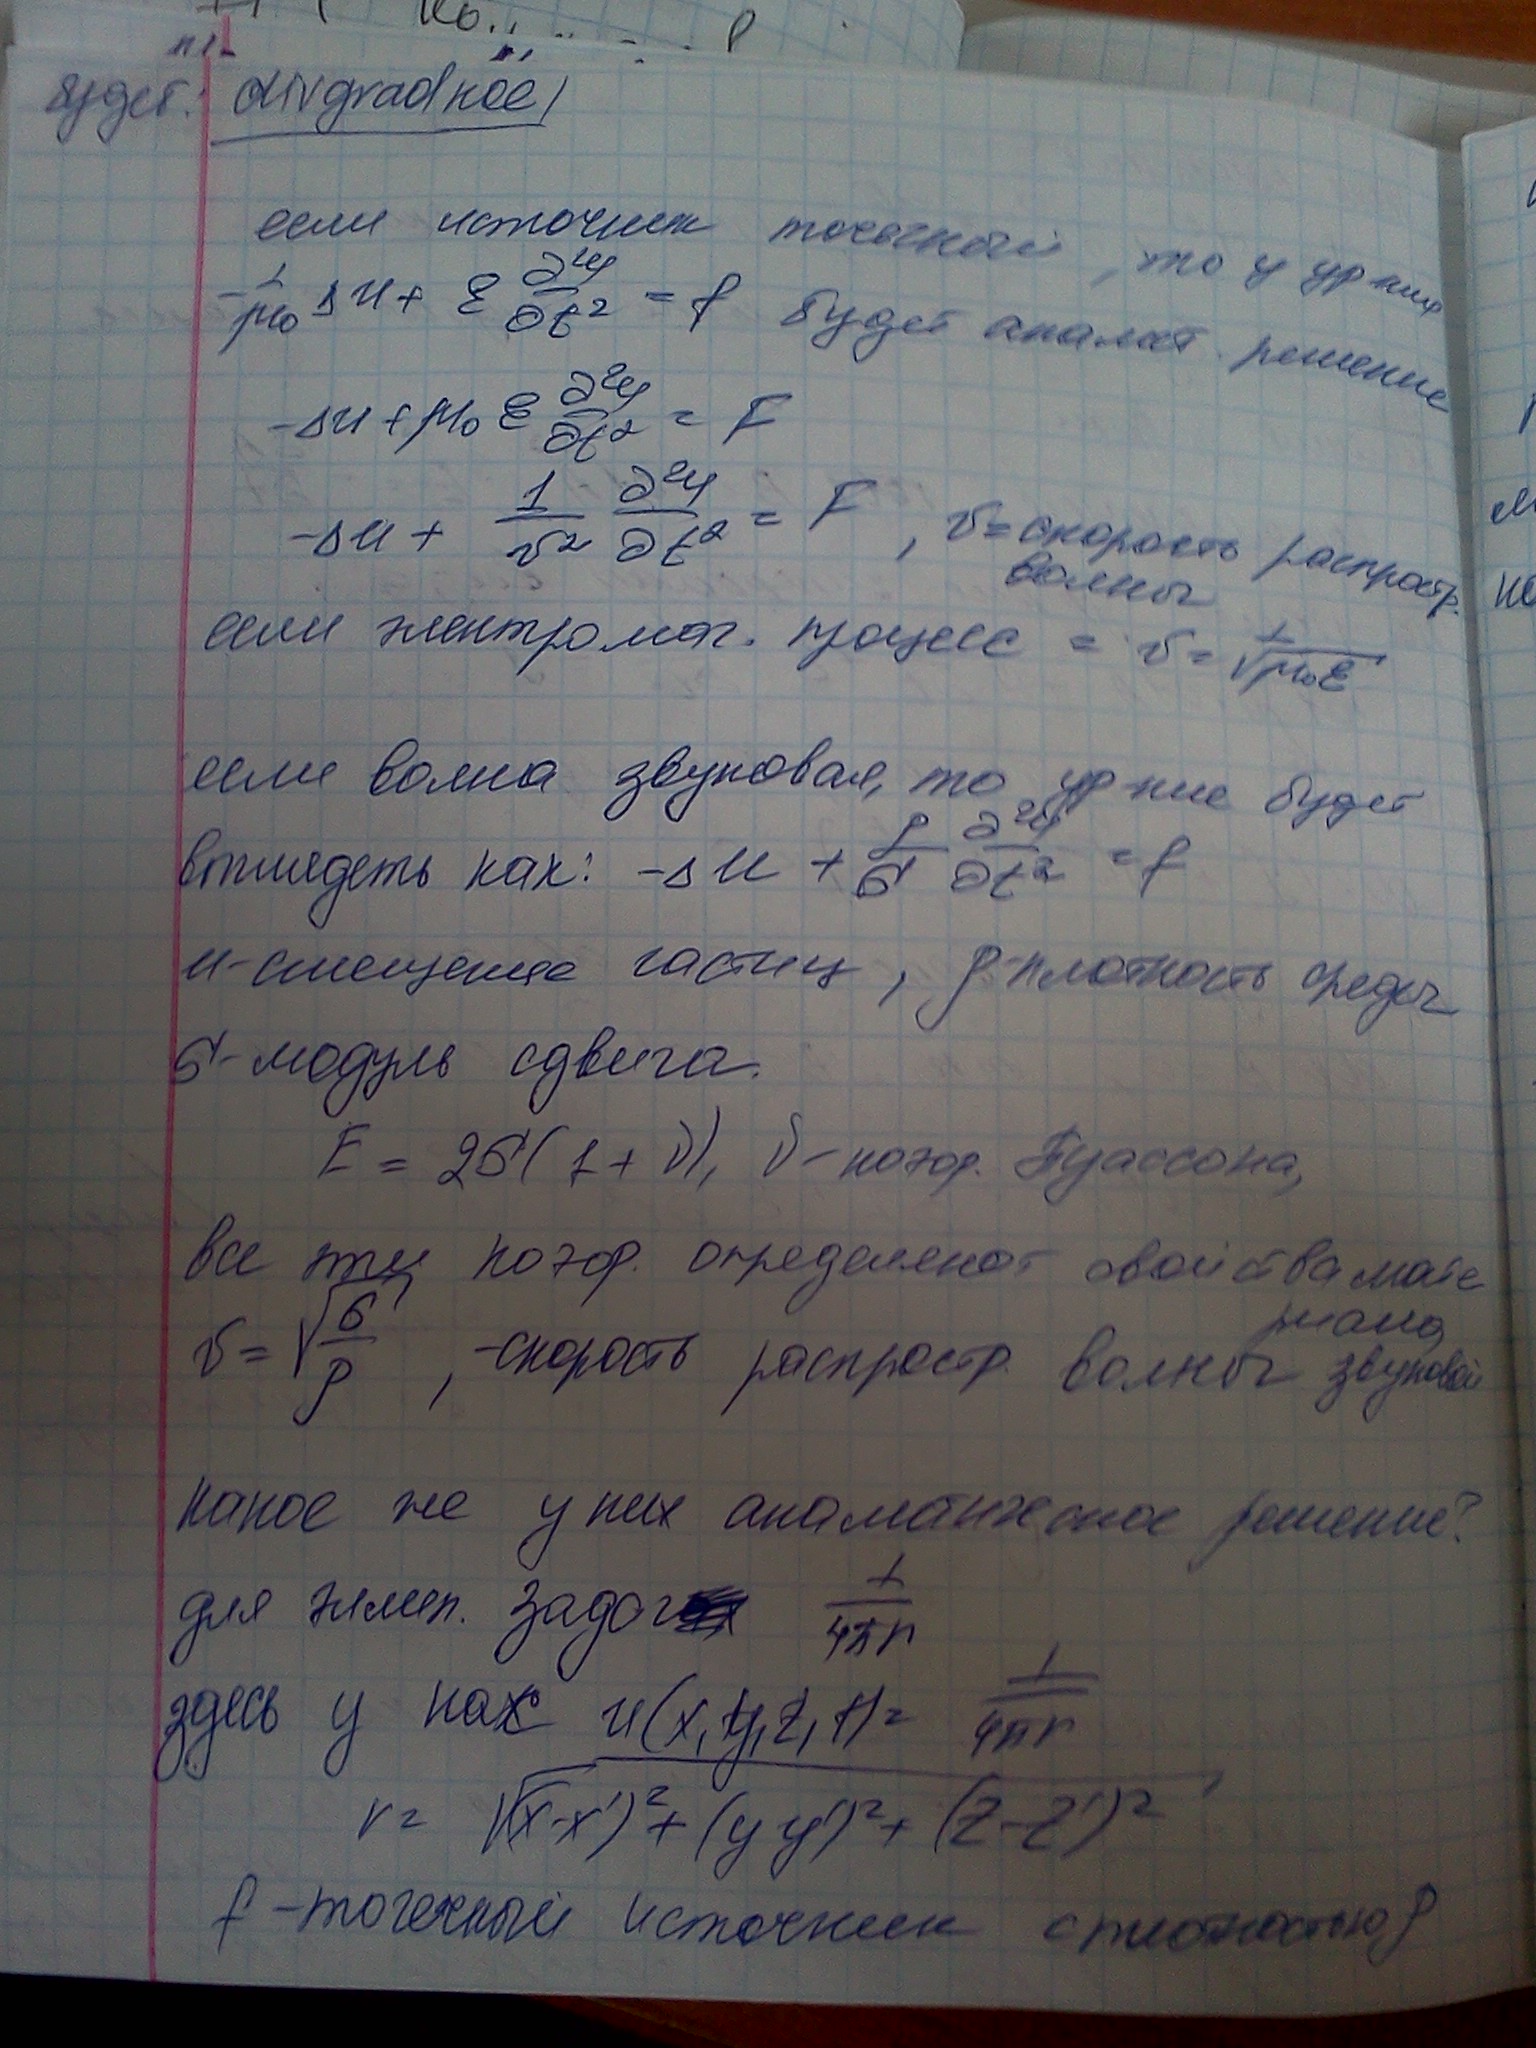 будет: divgradное,
если источник точечный, то у ур-ния
-1/μ₀ Δu + ε ∂²u/∂t² = f будет аналит. решение
-Δu + μ₀ ε ∂²u/∂t² = F
-Δu + 1/v² ∂²u/∂t² = F, v = скорость распростр.
волны
если электромаг. процесс = v = 1/√μ₀ε
если волна звуковая, то ур-ние будет
выглядеть как: -Δu + ρ/σ ∂²u/∂t² = f
u - смещение частиц, ρ - плотность среды
σ - модуль сдвига.
E = 2σ(1+ν), ν - коэф. Пуассона,
все эти коэф. определяют свойства мате
риала
v = √σ/ρ, - скорость распростр. волны звуковой
какое же у них аналитическое решение?
для эллип. задач 1/4πr
здесь у нас u(x,y,z,t) = 1/4πr
r = √(x-x')² + (y y')² + (z-z')²
f - точечный источник с плотностью ρ